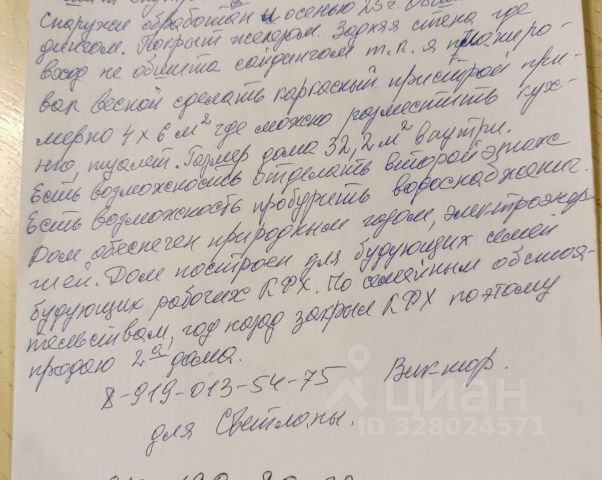 Снаружи обработан и осенью 25г.
дингом. Покрыт железом. Задняя стена где
вход не обшита сайдингом т.к. я планиро-
вал весной сделать каркасный пристрой при-
мерно 4 х 6 м² где можно разместить кух-
ню, туалет. Размер дома 32,2 м² внутри.
Есть возможность отделать второй этаж
Есть возможность пробурить водоснабжение.
Дом обеспечен природным газом, электроэнер-
гией. Дом построен для будующих семей
будующих рабочих КФХ. По семейным обстоя-
тельствам, год назад закрыл КФХ поэтому
продаю 2а дома.
8-919-013-54-75 Виктор.
для Светланы.
циан
ID 328024571